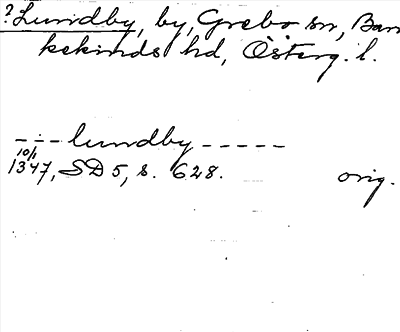 ? Lundby, by, Grebo sn, Ban
kekinds hd, Österg. l.
- - - lundby - - - - -
10/1
1347, SD 5, s. 628. orig.